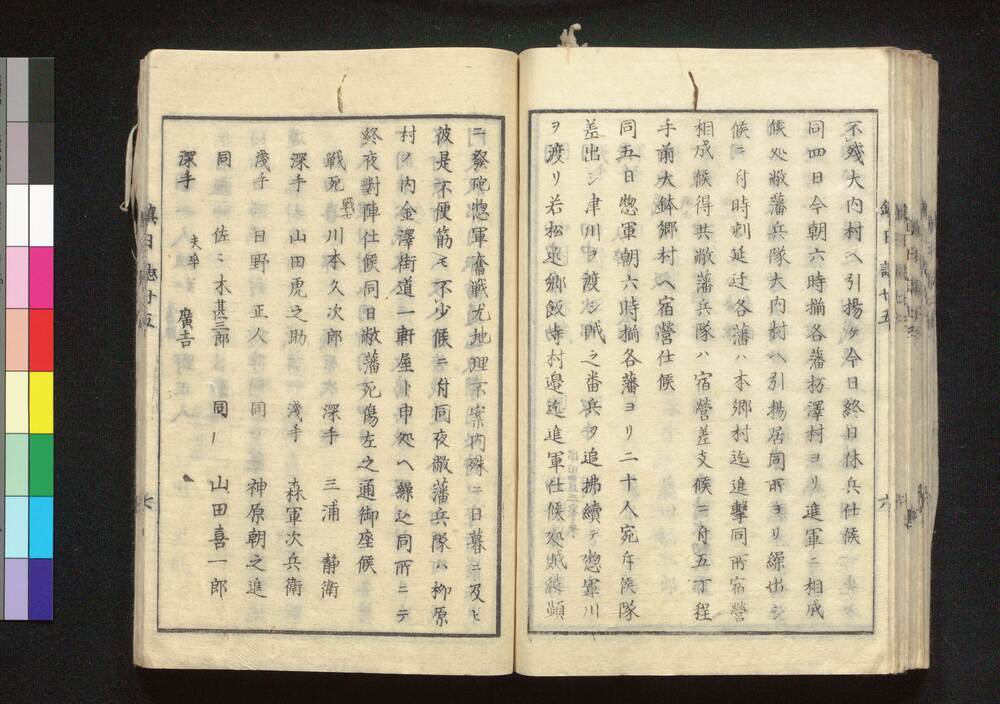 不残大内村ヘ引揚ケ今日終日休兵仕候
同四日今朝六時揃各藩栃澤村ヨリ進軍ニ相成
候処敝藩兵隊大内村ヘ引揚居同所ヨリ繰出シ
候ニ付時刻延迂各藩ハ本郷村迄進擊同所宿營
相成候得共敝藩兵隊ハ宿營差支候ニ付五丁程
手前大鉢郷村ヘ宿營仕候
同五日惣軍朝六時揃各藩ヨリ二十人宛斥候隊
差出シ津川ヲ渡シ賊之畨兵ヲ追拂續テ惣軍川
ヲ渡リ若松近郷飯寺村邊迄進軍仕候処賊徒頻
六
ニ發砲惣軍奮戦尤地理不案内殊ニ日暮ニ及ヒ
彼是不便筋モ不少候ニ付同夜敝藩兵隊ハ柳原
村ノ内金澤街道一軒屋ト申処ヘ繰込同所ニテ
終夜對陣仕候同日敝藩死傷左之通御座候
戦死 川本久次郎 深手 三浦 静衛
深手 山田虎之助 淺手 森軍次兵衛
淺手 日野正人 同 神原朝之進
同 佐々木甚三郎 同 山田喜一郎
深手 夫卒 廣吉
七